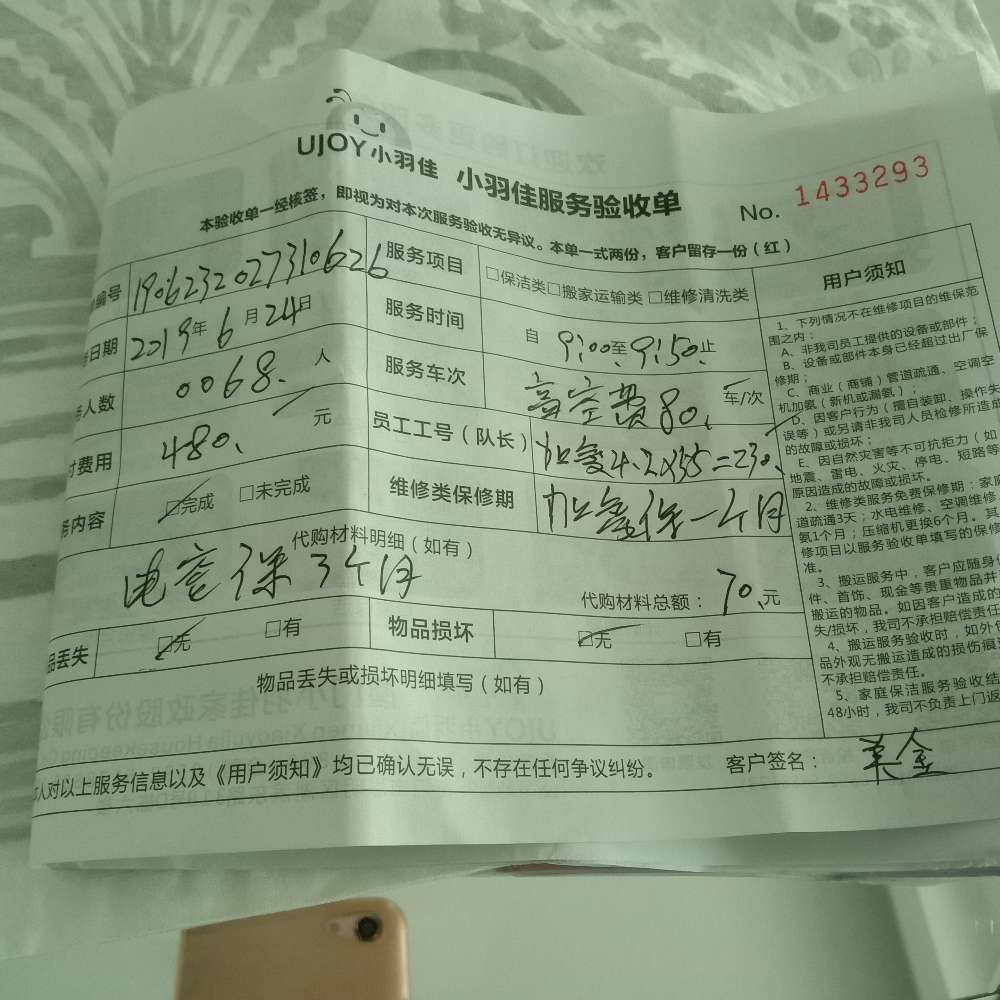 UJOY小羽佳 小羽佳服务验收单
No. 1433293
本验收单一经核签，即视为对本次服务验收无异议。本单一式两份，客户留存一份（红）
编号 1906232027310626
服务项目 □保洁类□搬家运输类 □维修清洗类
日期 2019年6月24日
服务时间 自 9:00至9:50止
人数 0068. 人
服务车次 高空费80. 车/次
费用 480. 元
员工工号（队长） 加氨4.2×55=230.
内容 □完成 □未完成
维修类保修期 加氨保一个月
代购材料明细（如有）
电容保3个月
代购材料总额： 70.元
品丢失 □无 □有
物品损坏 □无 □有
物品丢失或损坏明细填写（如有）
人对以上服务信息以及《用户须知》均已确认无误，不存在任何争议纠纷。
客户签名：
用户须知
1、下列情况不在维修项目的维保范
围之内：
A、非我司员工提供的设备或部件；
B、设备或部件本身已经超过出厂保
修期；
C、商业（商铺）管道疏通、空调空
机加氨（新机或漏氨）；
D、因客户行为（擅自装卸、操作失
误等）或另请非我司人员检修所造成
的故障或损坏；
E、因自然灾害等不可抗拒力（如
地震、雷电、火灾、停电、短路等
原因造成的故障或损坏。
2、维修类服务免费保修期：家庭
道疏通3天；水电维修、空调维修
氨1个月；压缩机更换6个月。其
修项目以服务验收单填写的保修
准。
3、搬运服务中，客户应随身
件、首饰、现金等贵重物品并
搬运的物品。如因客户造成的
失/损坏，我司不承担赔偿责任
4、搬运服务验收时，如外
品外观无搬运造成的损伤痕
不承担赔偿责任。
5、家庭保洁服务验收结
48小时，我司不负责上门返